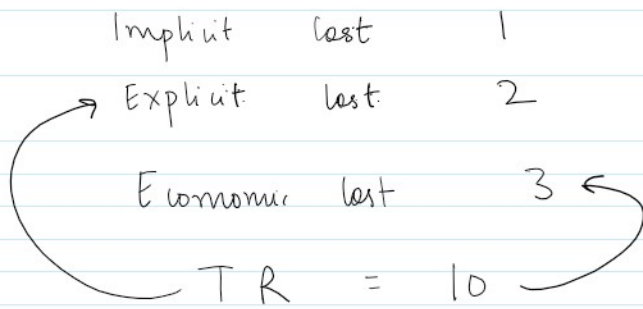 Implicit Cost 1
Explicit Cost 2
Economic Cost 3
TR = 10